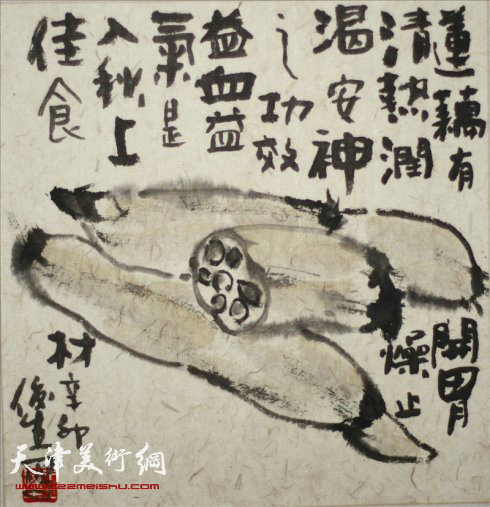 蓮藕有開胃
清熱潤燥止
渴安神
之功效
益血益
氣是
入秋上
佳食材辛卯
天津美術網
www.022meishu.com